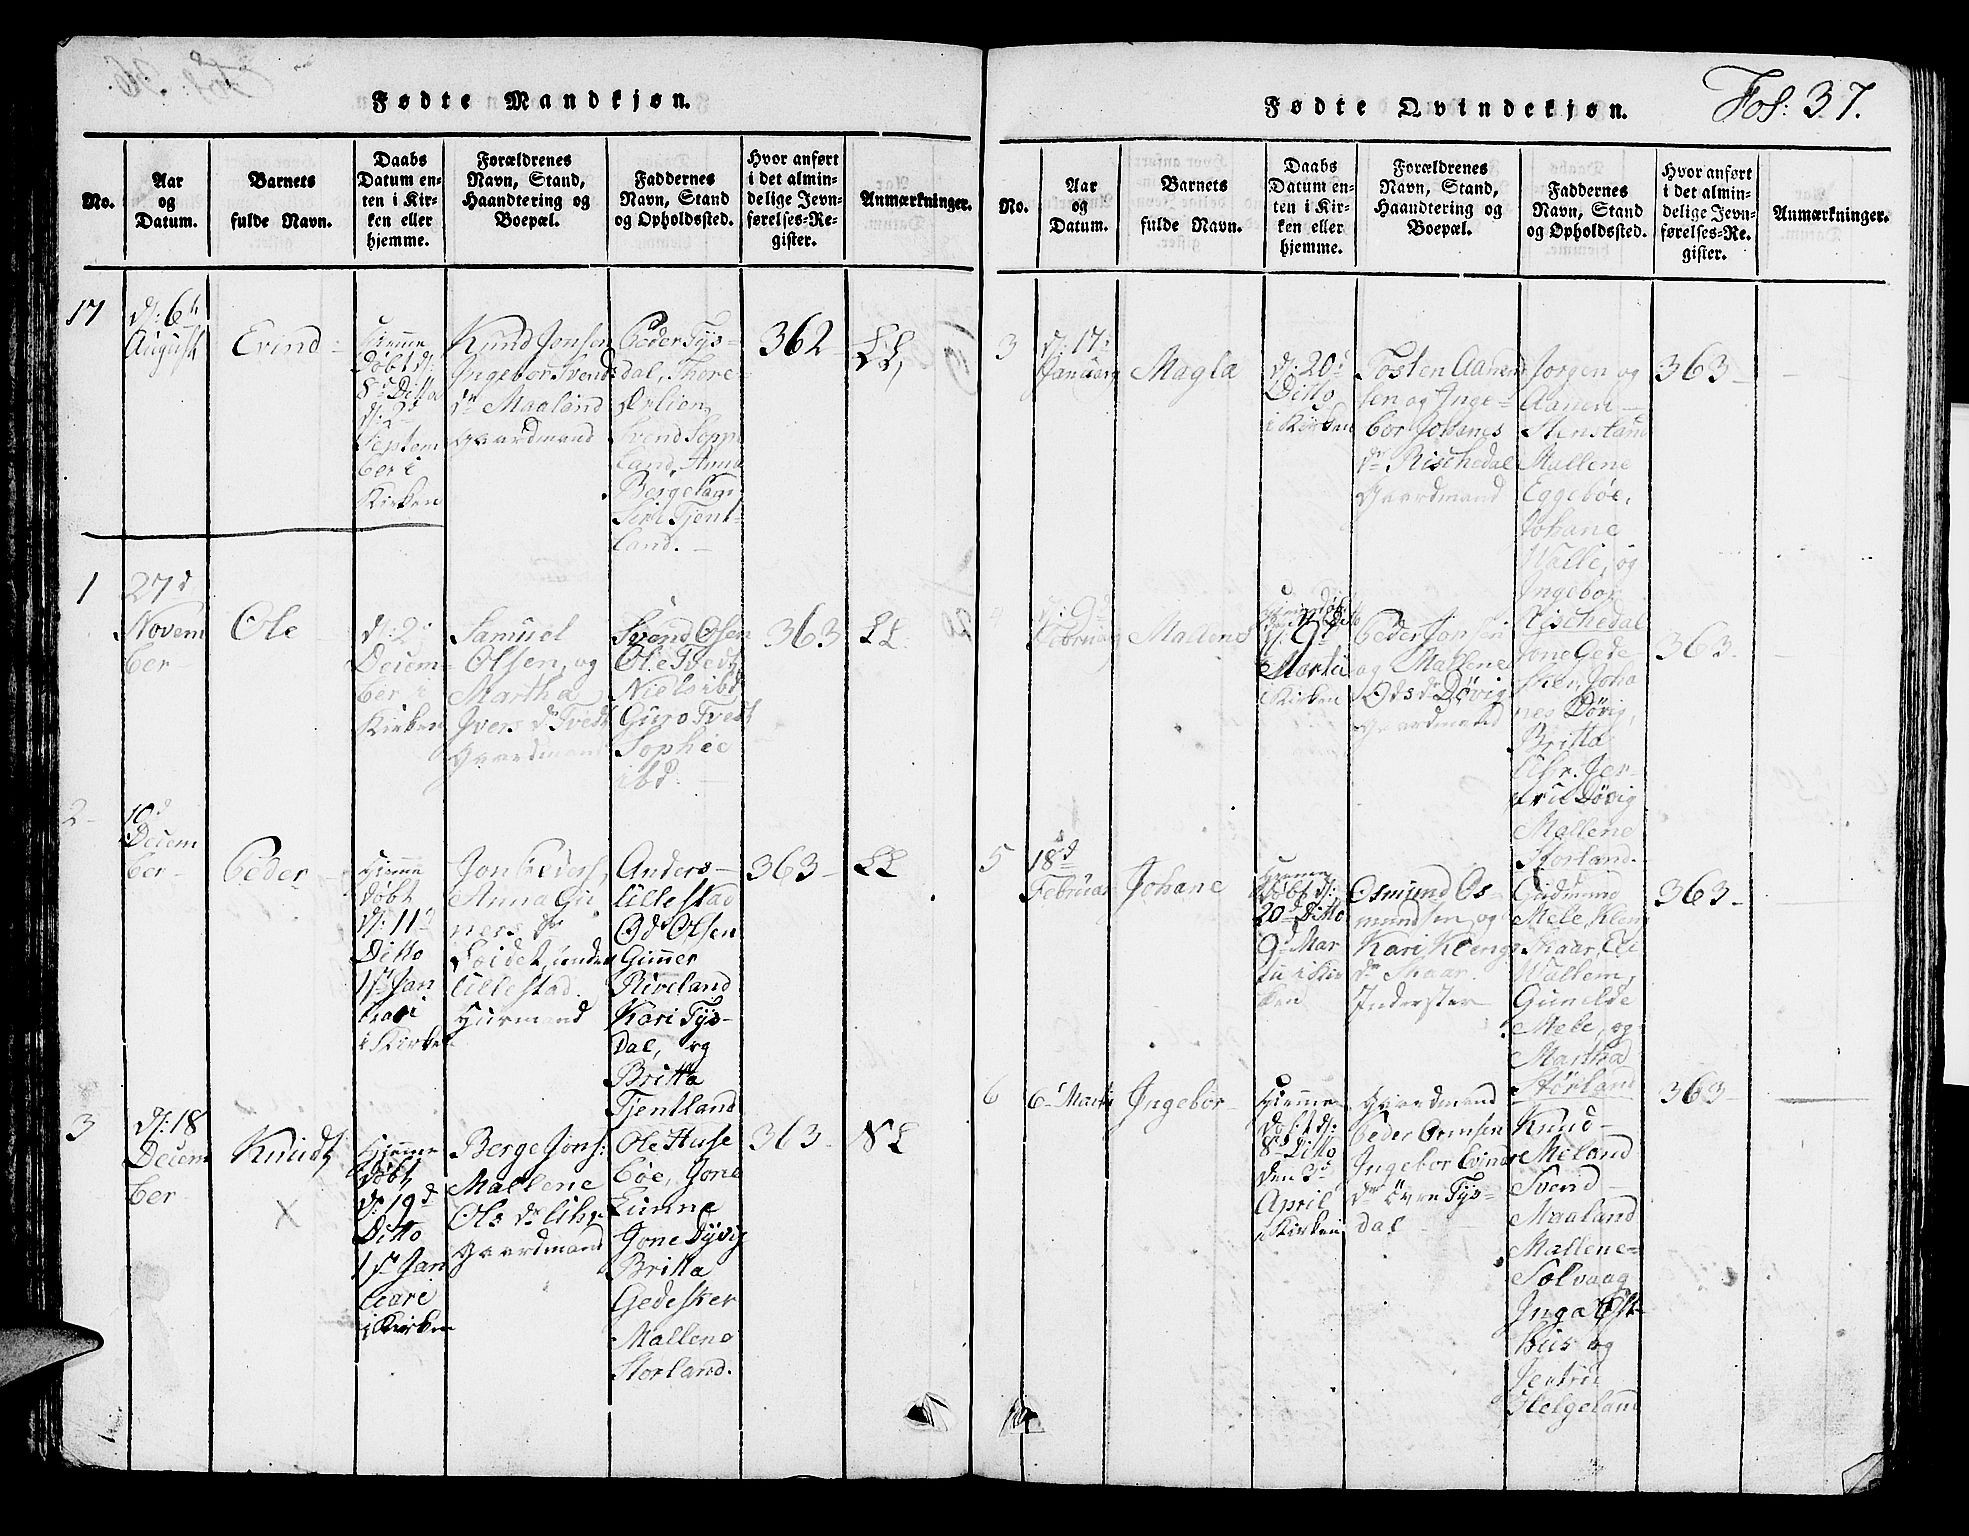 Fødte Mandkjøn.
No.
Aar
og
Datum.
Barnets
fulde Navn.
Daabs
Datum en-
ten i Kir-
ken eller
hjemme.
Forældrenes
Navn, Stand,
Haandtering og
Boepæl.
Faddernes
Navn, Stand
og Opholdssted.
Hvor anført
i det almin-
delige Jevn-
førelses-Re-
gister.
Anmærkninger.
17
d: 6te
August
Evind
Hjemme
døbt d:
8de Ditto
d: 2d
Septem
ber i
Kirken
Knud Jonsen
Ingebor Svends
dr Maaland
Gaardmand
Peder Tys-
dal, Thore
Ørlien,
Svend Sopp
land, Anna
Bergeland
Siri Tjent-
land.
362
LL
1
27d
Novem
ber
Ole
d: 2
Decem-
ber i
Kirken
Samuel
Olsen, og
Martha
Ivers dr Tvedt
Gaardmand
Svend Olsen
Ole Tvedt
Niels ibd
Guro Tvedt
Sophie
ibd.
363
LL
2
10d
Decem
ber
Peder
Hjemme
døbt
d: 11d
Ditto
1ste Jan
uari
i Kirken
Jon Peders,
Anna Gu
ners dr
Eeidet, under
Lillestad
Huusmand
Anders
Lillestad
Od Olsen
Gunner
Riveland
Kari Tys-
dal, og
Britta
Tjentland
363
LL
3
d: 18
Decem
ber
Knudt
X
Hjemme
døbt
d: 19d
Ditto
1ste Jan
uari
i Kirken
Berge Jons:
Mallene
Ols dr
Gaardmand
Ole Huse
bøe, Jone
Jone Dyvig
Britta
Gedesker
Mallene
Storland.
363
LL
Fødte Qvindekjøn.
Fol: 37.
No.
Aar
og
Datum.
Barnets
fulde Navn.
Daabs
Datum en-
ten i Kir-
ken eller
hjemme.
Forældrenes
Navn, Stand,
Haandtering og
Boepæl.
Faddernes
Navn, Stand
og Opholdssted.
Hvor anført
i det almin-
delige Jevn-
førelses-Re-
gister.
Anmærkninger.
3
d: 17
Januari
Magla
d: 20d
Ditto
i Kirken
Tosten Aanen
sen og Inge-
bor Johanes
dr Rischedal
Gaardmand
Jorgen og
Aanen
Stensland
Mallene
Eggebøe,
Johane
Walle, og
Ingebor
Rischedal
363
4
d: 9d
Februar
Mallene
d: 9d
Martii
i Kirken
Peder Jonsen
og Mallene
Ods dr Døvig
Gaardmand
Jone Gede-
sker, Joha
nes Døvig,
Britta
Døvig
Mallene
Storland.
363
5
18d
Februar
Johane
Hjemme
døbt d:
20d Ditto
9d Mar
tii i Kir
ken
Osmund Os-
mundsen og
Kari Klengs
dr Skaar
Inderster
Gudmund
Mele, Kleng
Skaar, Eli
Wallem,
Gunilde
Mele, og
Martha
Storland
363
6
6te Martii
Ingebor
Hjemme
døbt d:
8de Ditto
den 3d
April
i Kirken
Gaardmand
Peder Ormsen
Ingebor Evinds
dr Övre Tys-
dal
Knud
Meland
Svend
Maaland
Mallene
Solvaag
Inga Øst-
huus og
Jertru
Helgeland
363